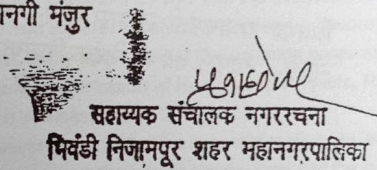 नगी मंजुर
सहाय्यक संचालक नगररचना
भिवंडी निजामपूर शहर महानगरपालिका